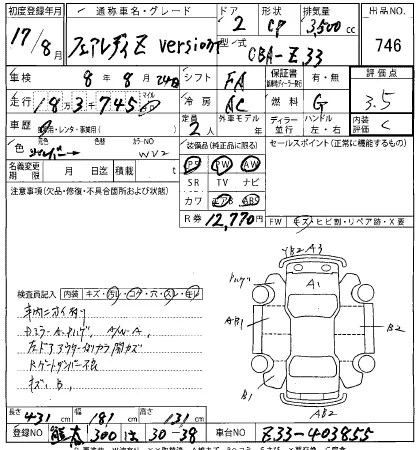 初度登録年月 通称車名・グレード ドア 形状 排気量 出品NO.
17/8月 フェアレディZ version 2 CP 3,500cc 746
型式 CBA-Z33
車検 8年8月24日 シフト FA 保証書 有・無 評価点
走行 18万3千745 マイル 冷房 AC 燃料 G 3.5
車歴 自家用・レンタ・事業用( ) 定員 2人 外車モデル年 ディーラー 並行 ハンドル 左・右 内装評価 C
色 元色 シルバー 色替 カラーNO WV2 装備品(純正品に限る) セールスポイント(正常に機能するもの)
名義変更期限 月 日迄 積載 t PS PW AW
注意事項(欠品・修復・不具合箇所および状態) SR TV ナビ
カワ エアB ABS
R券 12,770円 FW キズ・ヒビ割・リペア跡・X要
検査員記入 内装 キズ・汚レ・コゲ・穴・スレ・
車内ニオイ有り
左ドアアウターカラ
Rゲートダンパー不良
キズ、B、
ハンゲ 2 A3
A1
AB1 B2
B1
AB2
長さ 431cm 幅 181cm 高さ 131cm
登録NO 熊本 300 は 30-38 車台NO Z33-403855